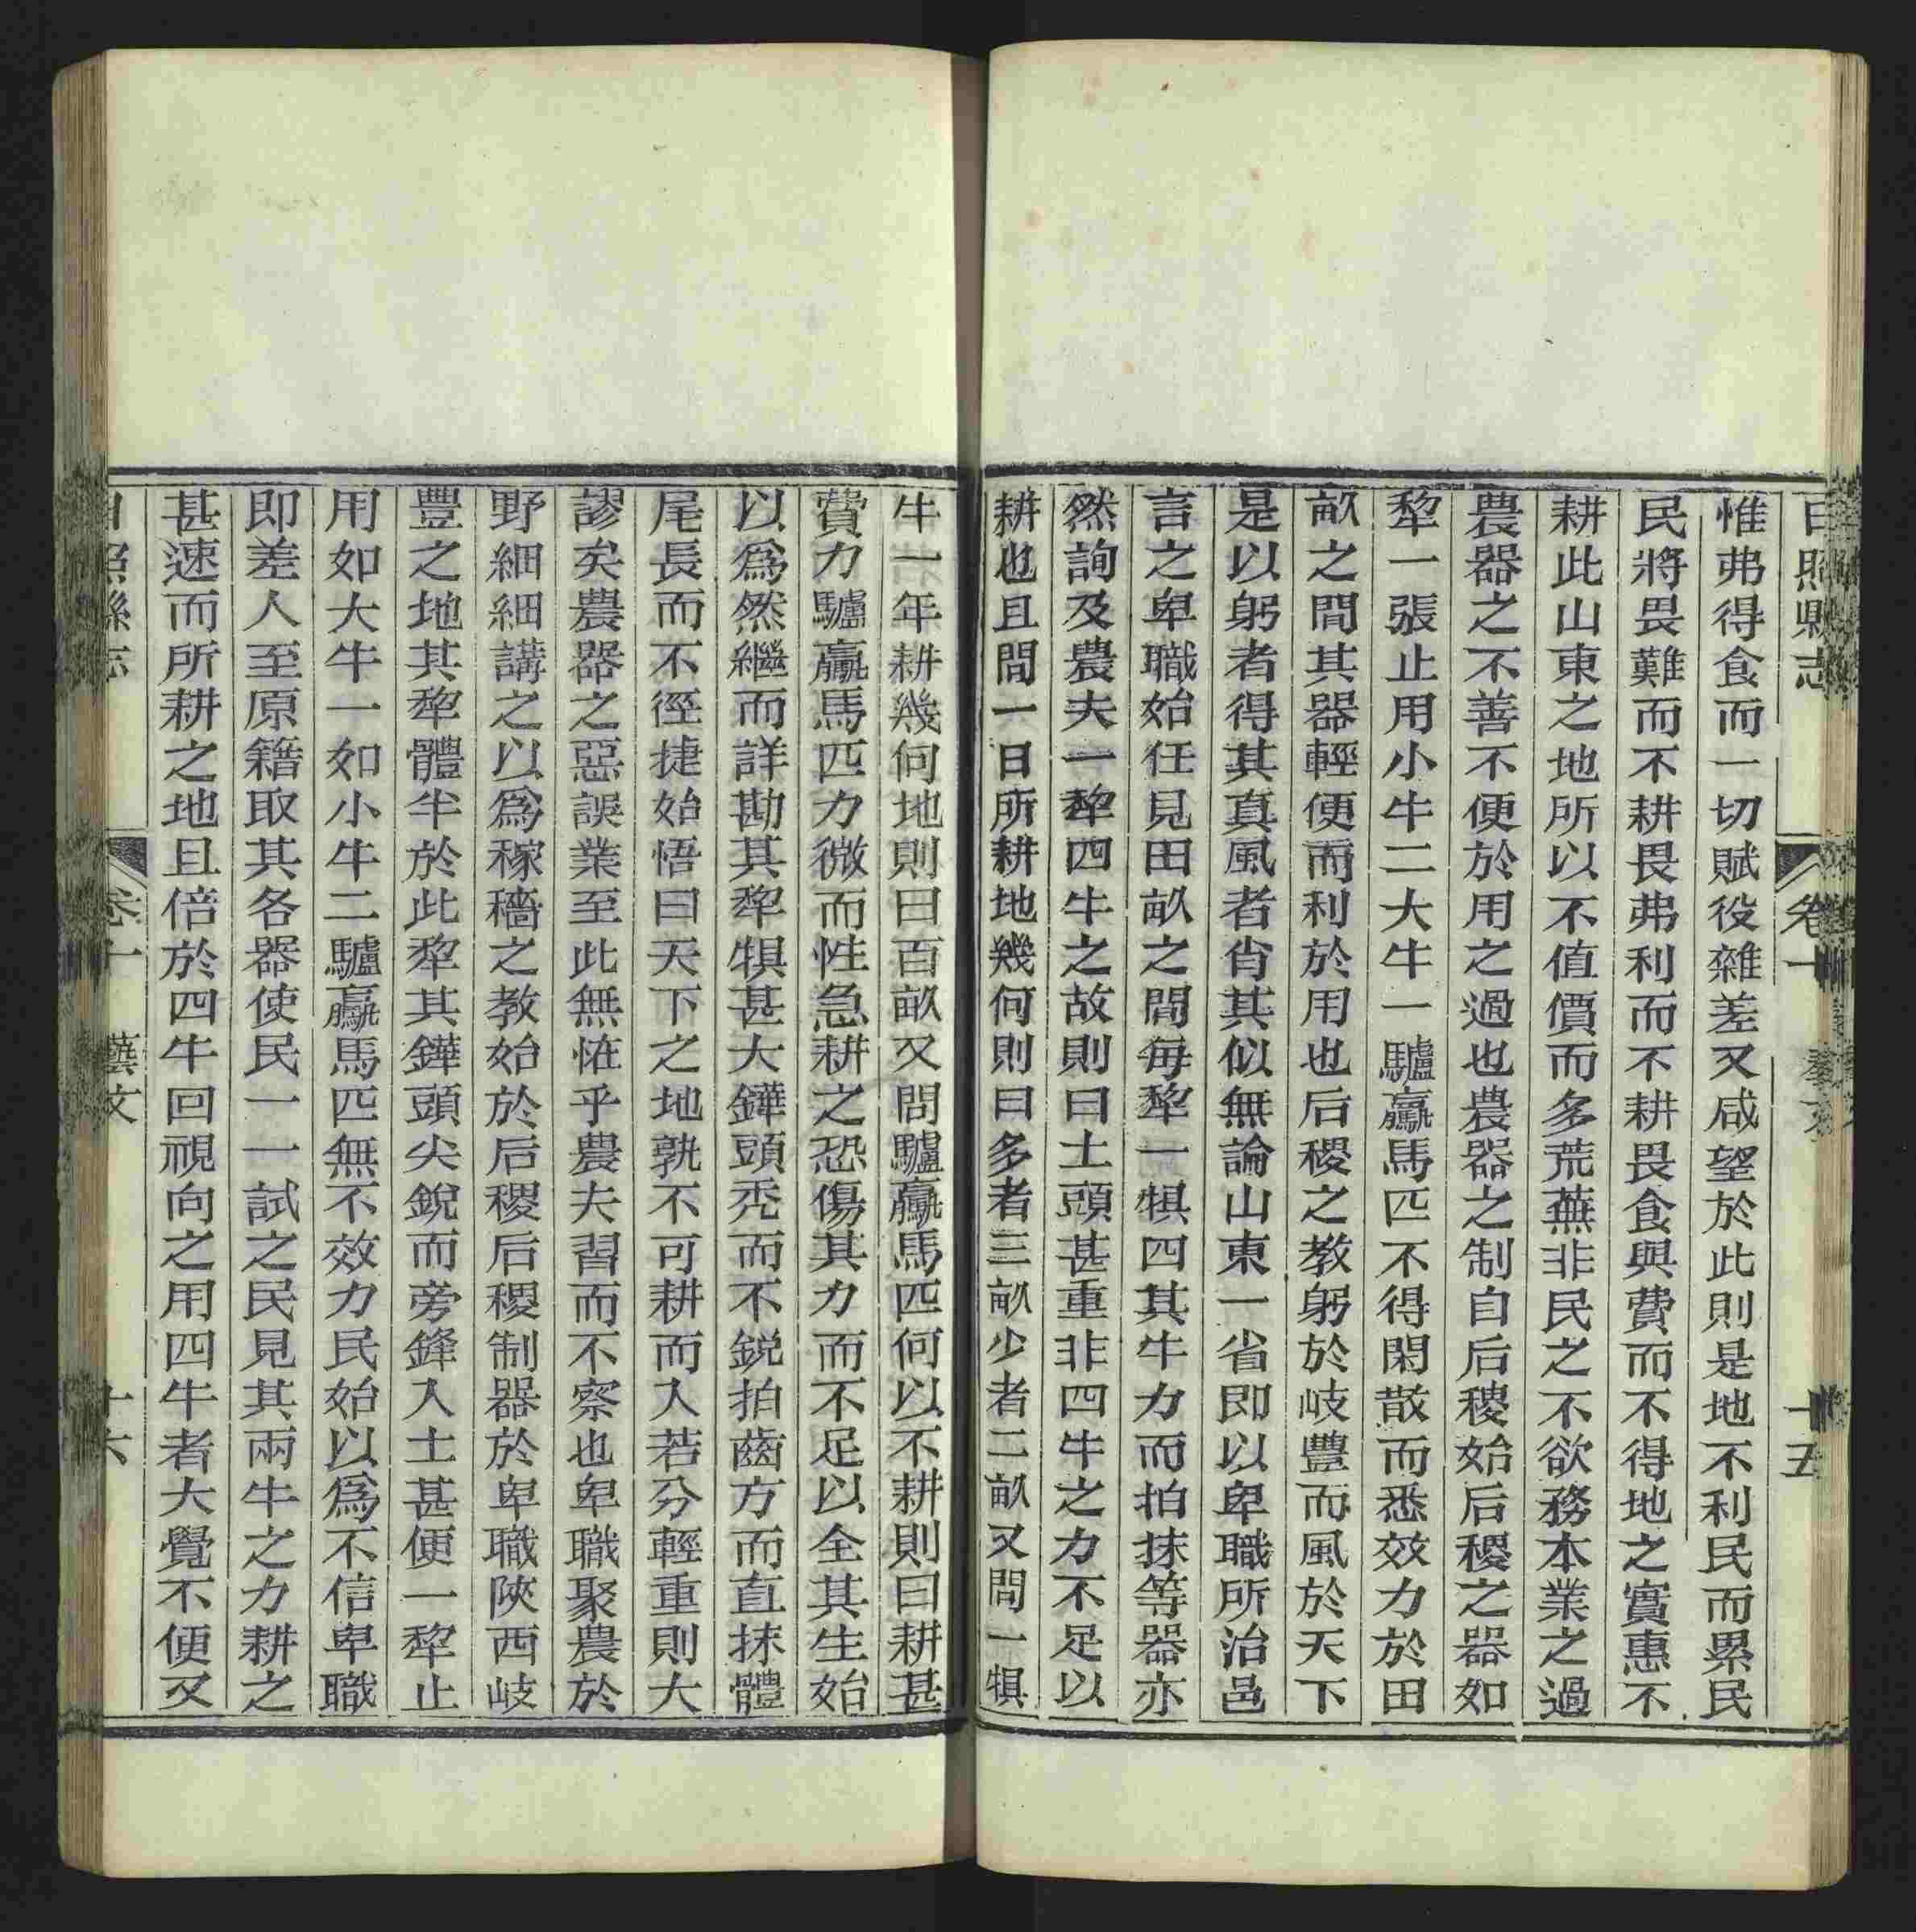 日照縣志 卷十 藝文 十五
惟弗得食而一切賦役雜差又咸望於此則是地不利民而累民
民將畏難而不耕畏弗利而不耕畏食與費而不得地之實惠不
耕此山東之地所以不值價而多荒蕪非民之不欲務本業之過
農器之不善不便於用之過也農器之制自后稷始后稷之器如
犂一張止用小牛二大牛一驢驘馬匹不得閑散而悉效力於田
畝之間其器輕便而利於用也后稷之教躬於岐豐而風於天下
是以躬者得其真風者肖其似無論山東一省即以卑職所治邑
言之卑職始任見田畝之間每犂一犋四其牛力而拍抹等器亦
然詢及農夫一犂四牛之故則曰土頭甚重非四牛之力不足以
耕也且問一日所耕地幾何則曰多者三畝少者二畝又問一犋
牛一年耕幾何地則曰百畝又問驢驘馬匹何以不耕則曰耕甚
費力驢驘馬匹力微而性急耕之恐傷其力而不足以全其生始
以爲然繼而詳勘其犂犋甚大鏵頭秃而不銳拍齒方而直抹體
尾長而不徑捷始悟曰天下之地孰不可耕而入若分輕重則大
謬矣農器之惡誤業至此無恠乎農夫習而不察也卑職聚農於
野細細講之以爲稼穡之教始於后稷后稷制器於卑職陝西岐
豐之地其犂體半於此犂其鏵頭尖銳而旁鋒入土甚便一犂止
用如大牛一如小牛二驢驘馬匹無不效力民始以爲不信卑職
即差人至原籍取其各器使民一一試之民見其兩牛之力耕之
甚速而所耕之地且倍於四牛回視向之用四牛者大覺不便又
日照縣志 卷十 藝文 十六